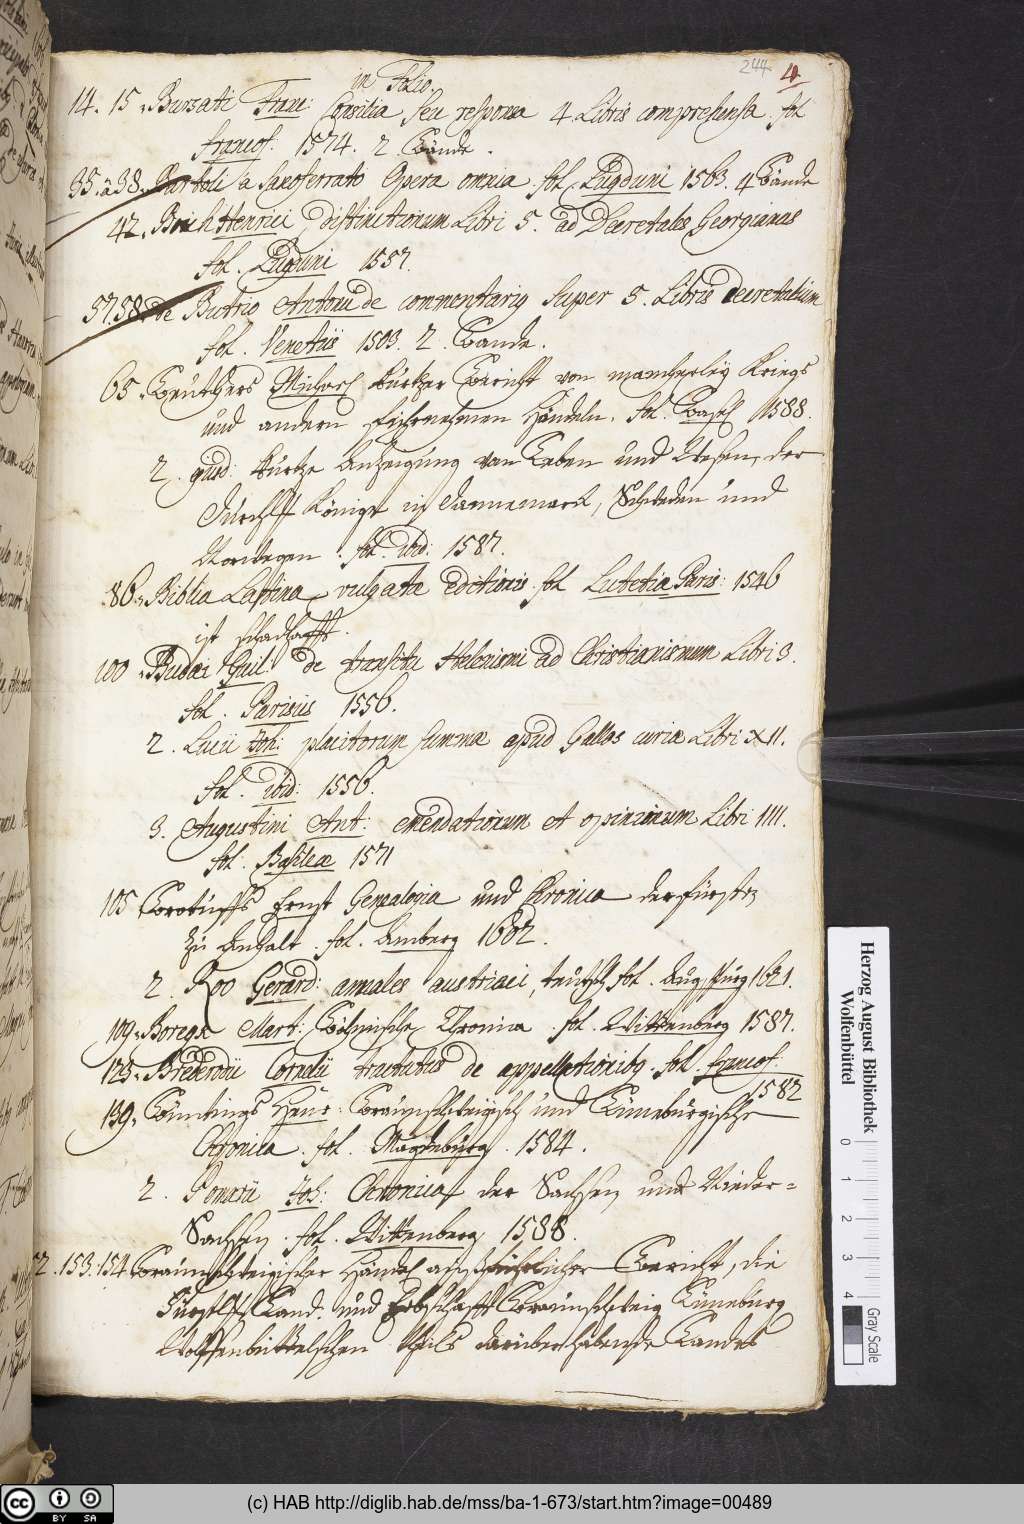 244 4
in Folio.
14. 15. Bursati Franc: Consilia seu responsa 4 Libris comprehensa. fol
francof. 1574. 2 Bände.
35. à 38. Bartoli a Saxoferrato Opera omnia. fol. Lugduni 1563. 4 Bände
42. Henrici, distinctionum Libri 5. ad Decretales Georgianas
fol. Lugduni 1557.
57. 58. de Butrio Antonii de commentarius super 5. Libris decretalium
fol. Venetiis 1503. 2. Bande.
65. Beuthers Michael kurtzer Bericht von mancherley Kriegs
und andern fürnehmen Händeln. fol. Basel 1588.
2. kurtze Anzeigung von Leben und Wesen, der
Könige in Dannemarck, Schweden und
Norwegen. fol. ibid: 1587.
86. Biblia Latina vulgatæ editionis fol Lutetiæ Paris: 1546
ist schadhafft.
100. Budæi Guil: de transitu Helenismi ad Christianismum Libri 3.
fol. Parisiis 1556.
2. Lucii Joh: placitorum summæ apud Gallos curiæ Libri X11.
fol. ibid: 1556.
3. Augustini Ant: emendationum et opinionum Libri 1111.
fol. Basileæ 1571
105 Brotuffs Ernst Genealogia und Chronica der Fürsten
zu Anhalt. fol. Amberg 1602.
2. Roo Gerard: annales austriaci, teutsch fol. Augspurg 1621.
109. Boregk Mart: Böhmische Chronica. fol. Wittenberg 1587.
123. Brederodii Cornelii tractatus de appellationibus. fol. francof.
1582
139. Büntings Henr: Braunschweigisch und Lüneburgische
Chronica. fol. Magdeburg. 1584.
2. Pomarii Joh: Chronica der Sachsen und Nieder=
Sachsen. fol. Wittenberg 1588.
52. 153. 154. Braunschweigischer Händel außführlicher Bericht, die
Fürstl Land. und Erbschafft Braunschweig Lüneburg
Wolffenbüttelschen Theils darüber habende Landes
Herzog August Bibliothek
Wolfenbüttel
0 1 2 3 4
Gray Scale
cc BY SA
(c) HAB http://diglib.hab.de/mss/ba-1-673/start.htm?image=00489